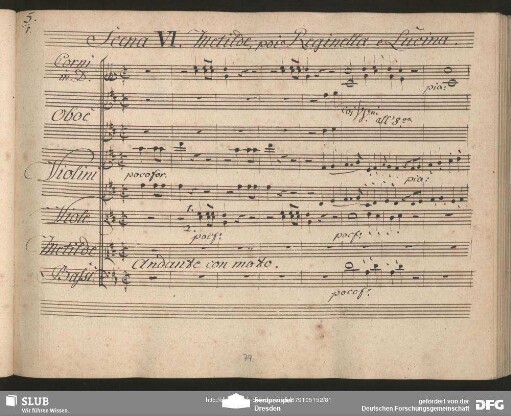 Scena VI. Metilde, poi Reginella e Lucina.
Corni
in D.
pia:
Oboè
coi Vni.
all' 8va
Violini
pocofor.
pia:
Viole
1.
2.
pocf:
pocf:
Metilde
Andante con moto.
Bassi
pocof:
74
SLUB
Wir führen Wissen.
Dresden
gefördert von der
Deutschen Forschungsgemeinschaft
DFG